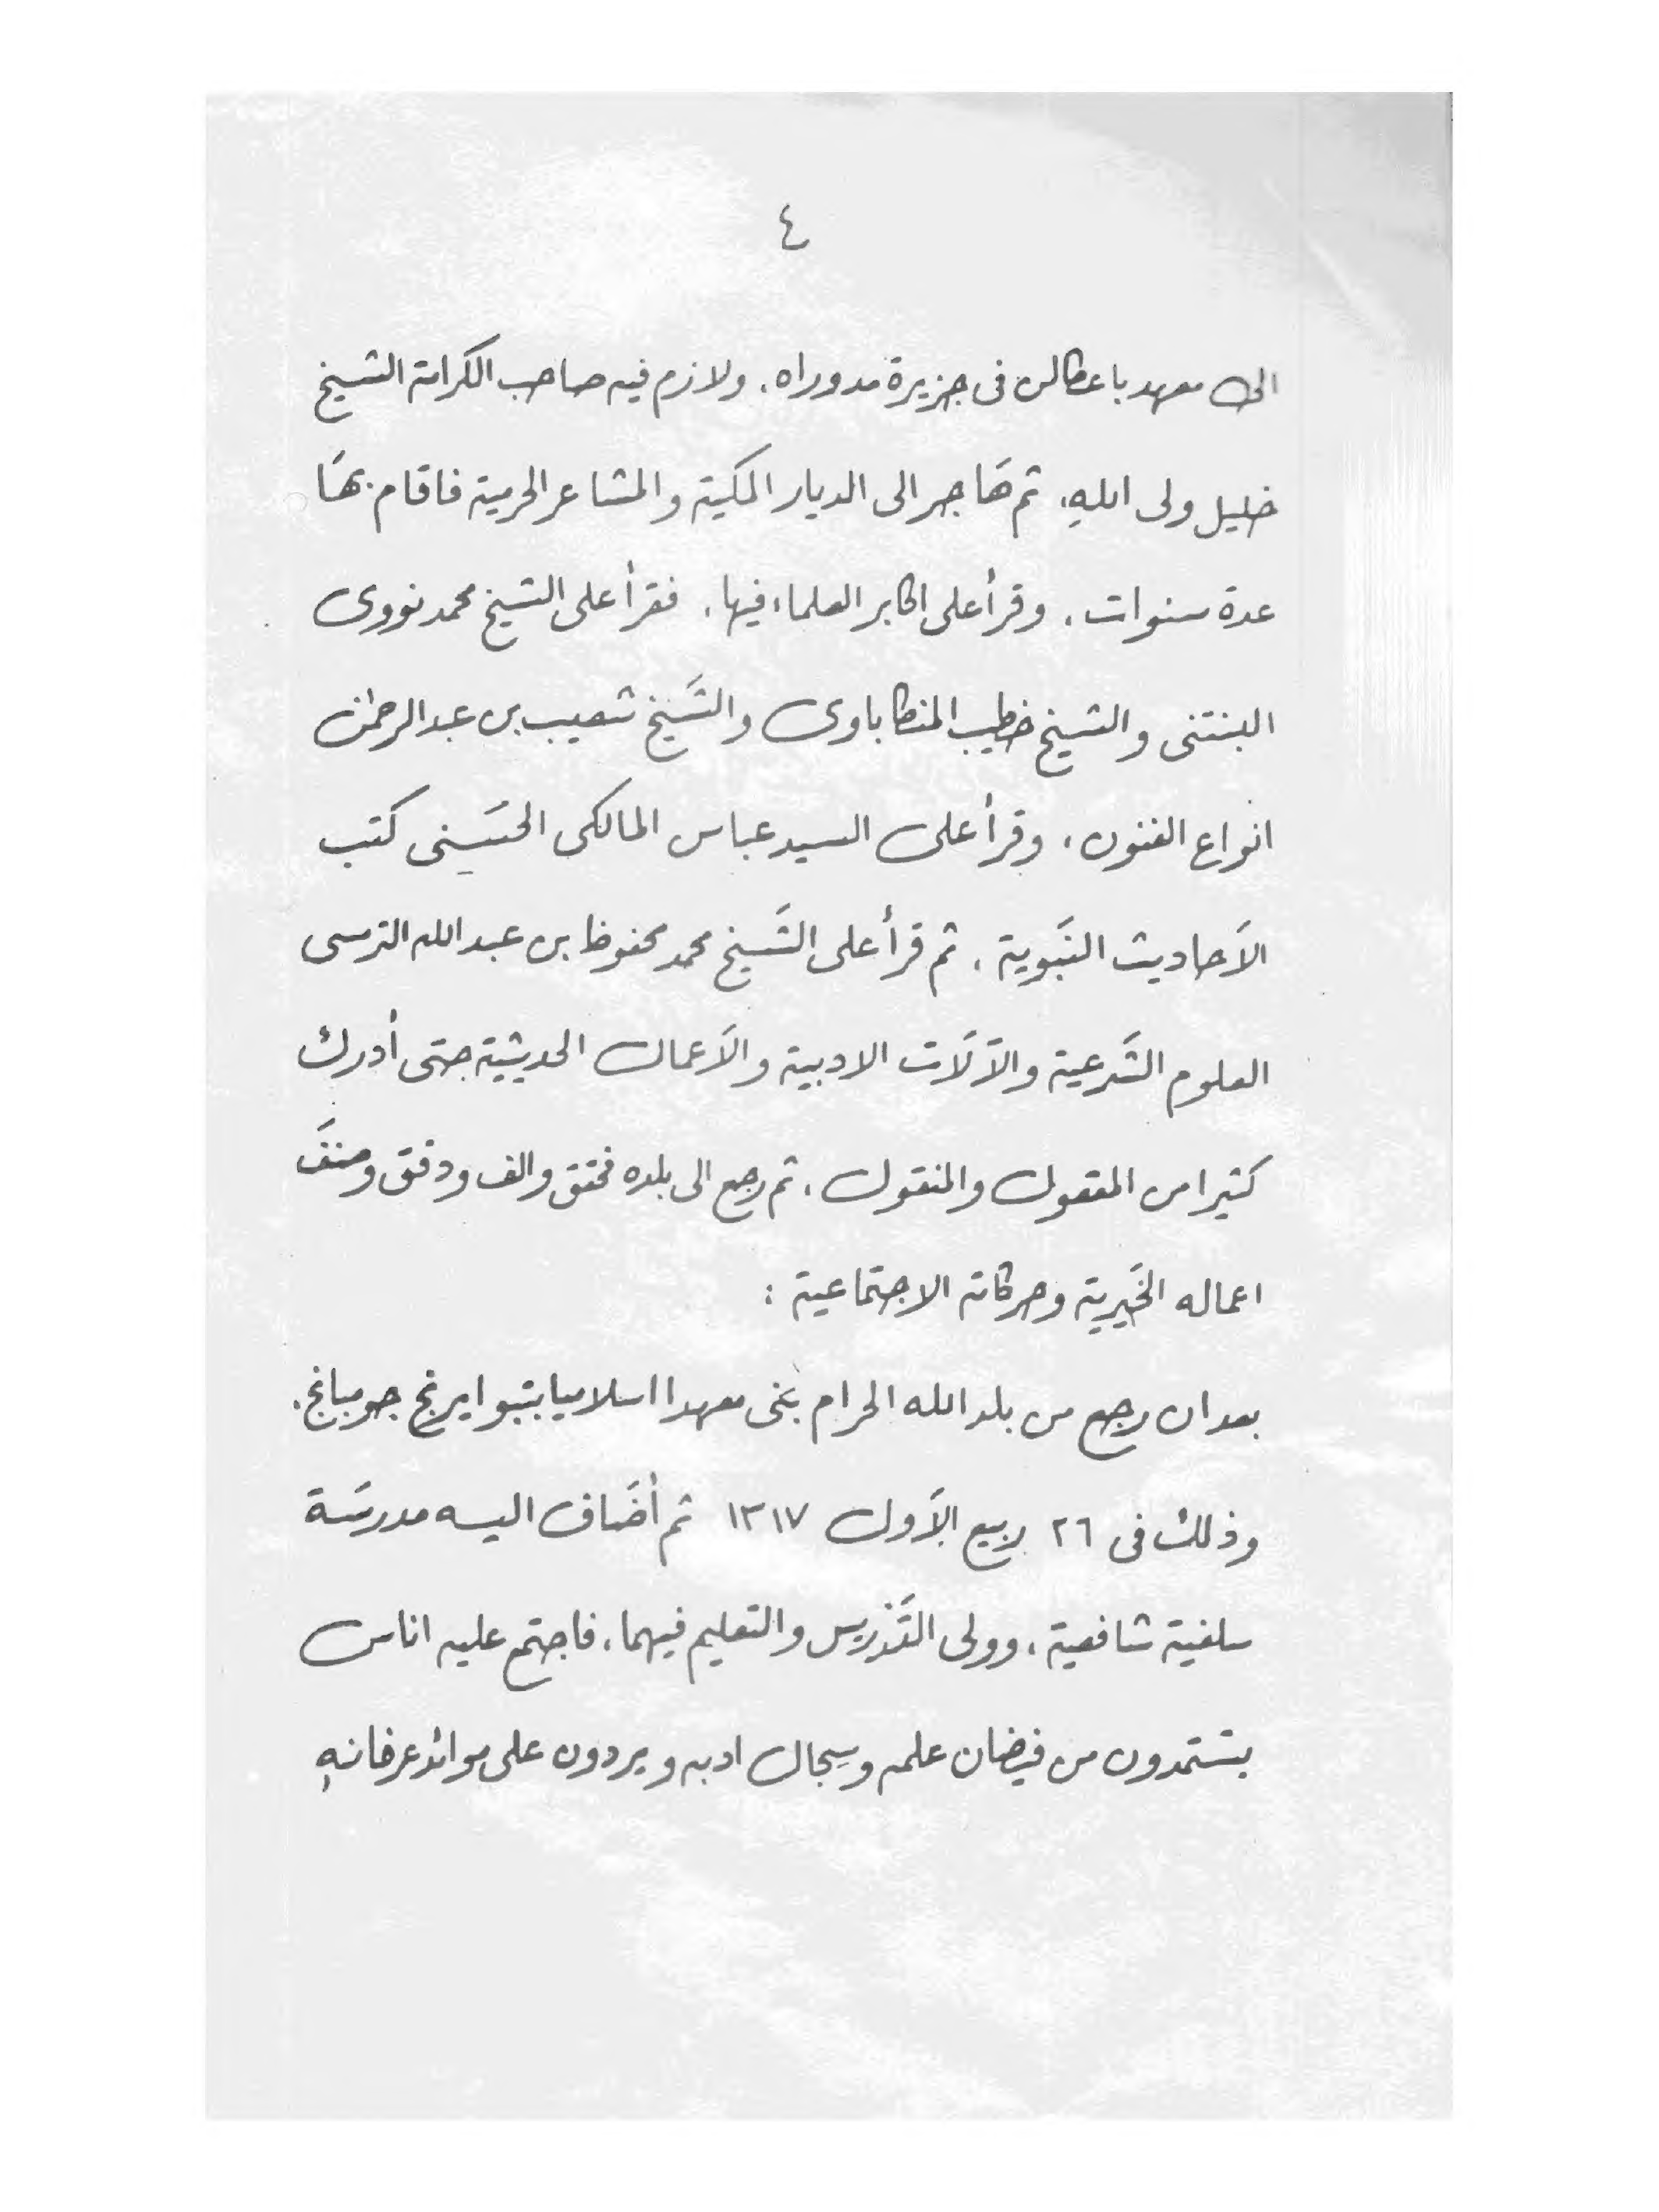 ٤
الى معهد باعكالن فى جزيرة مدوراه، ولازم فيه صاحب الكرامة الشيخ
خليل ولى اللهِ، ثم هَاجر الى الديار المكية والمشاعر الحرمية فاقام بهَا
عدة سنوات، وقرأ على اكابر العلماء فيها، فقرأ على الشيخ محمد نووى
البنتنى والشيخ خطيب المنكاباوى والشَيخ شعيب بن عبد الرحمٰن
انواع الفنون، وقرأ على السيد عباس المالكى الحسَينى كتب
الأَحاديث النَبَوية، ثم قرأ على الشَيخ محمد محفوظ بن عبد الله الترمسى
العلوم الشَرعية والآلَات الادبية والأَعمال الحديثية حتى أدرك
كثيرا من المعقول والمنقول، ثم رجع الى بلده فحقق والف ودقق وصنفَ
اعماله الخَيرية وحركاته الاجتماعية :
بعد ان رجع من بلد الله الحرام بَنى معهدا اسلاميا بتبوايرنج جومبانج،
وذلك فى ٢٦ ربيع الأَول ١٣١٧ ثم أضَاف اليه مدرسَة
سلفية شافعية، وولى التَدريس والتعليم فيهما، فاجتمع عليه اناس
يستمدون من فيضان علمه وسِجال ادبه ويردون على موائد عرفانهِ